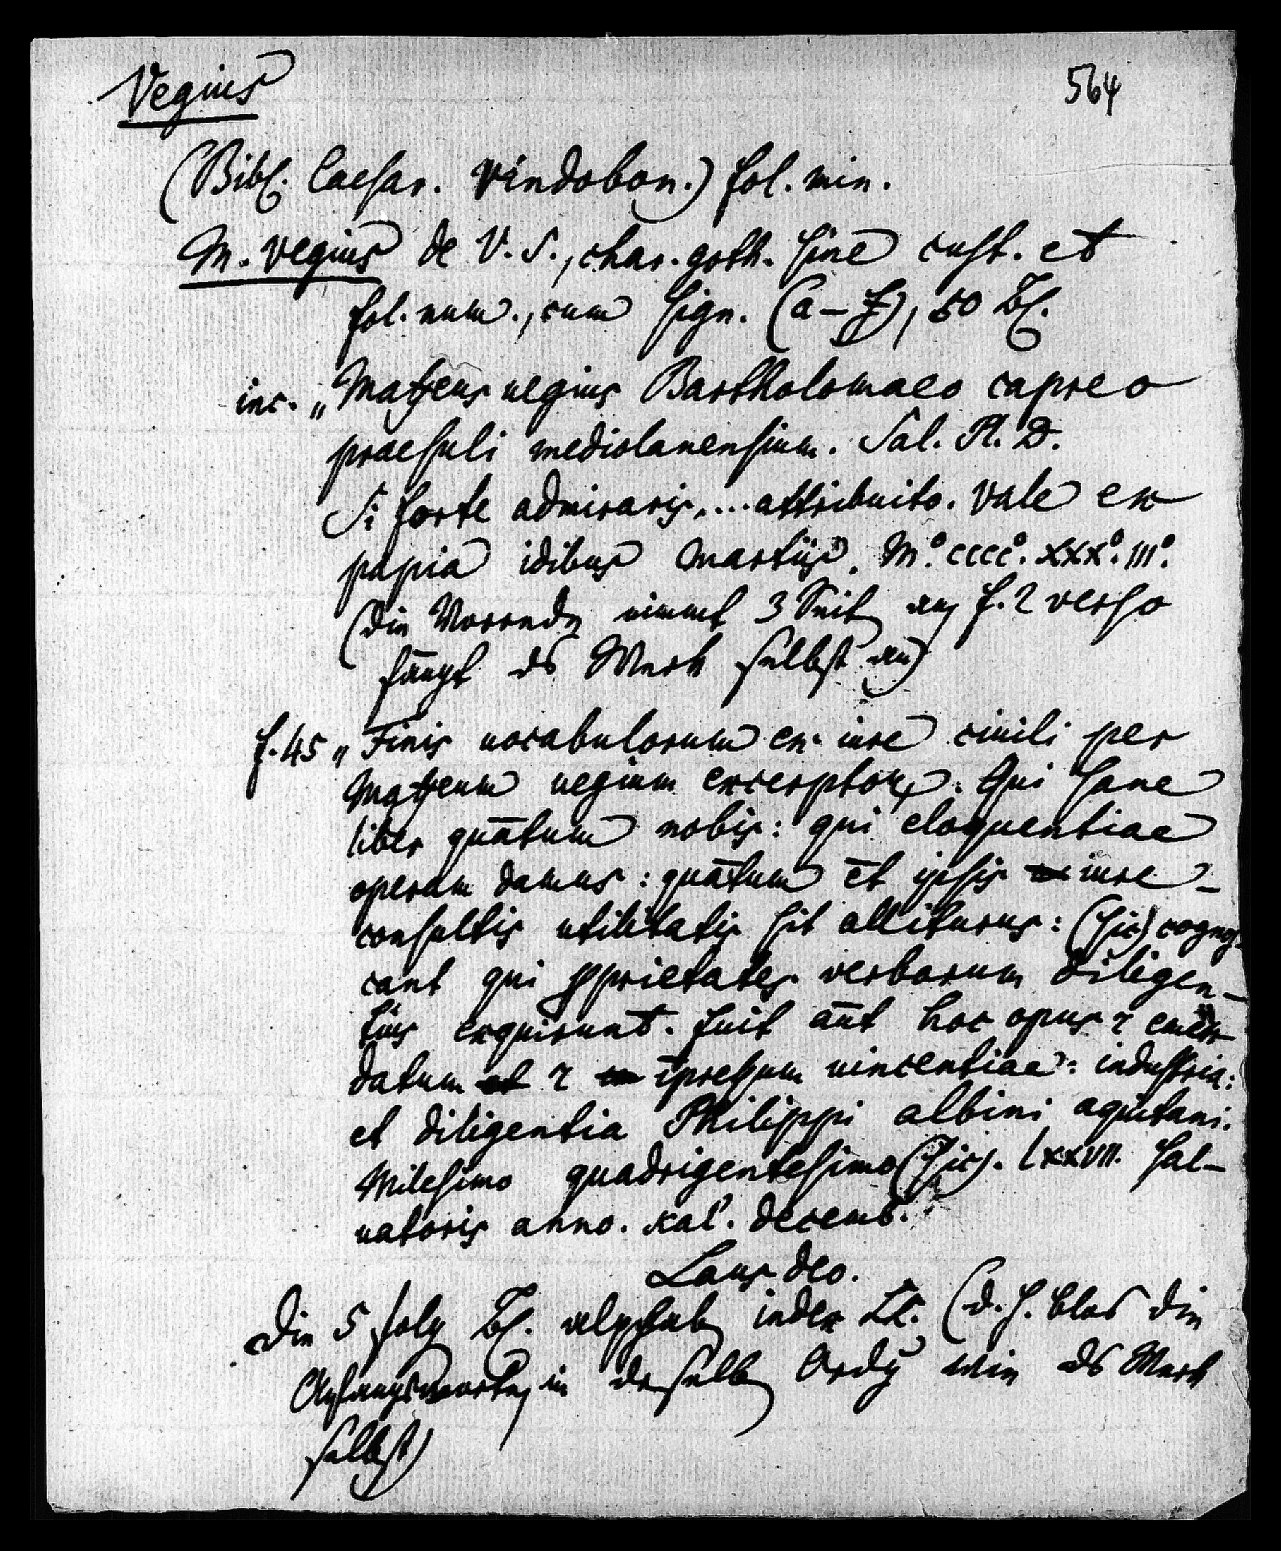 Vegius
564
(Bibl. Caesar. Vindobon.) fol. min.
M. Vegius de V. S., char. goth. sine cust. et
fol. num., cum sign. (a–f), 50 Bl.
inc. „Maffeus uegius Bartholomaeo capreo
praesuli mediolanensium. Sal. Pl. D.
Si forte admiraris,...attribuito. Vale ex
papia idibus Martiis. Mº. ccccº. xxxº. IIIº.
(Die Vorrede nimmt 3 Seit ein f. 2 verso
fängt ds Werk selbst an)
f. 45 „Finis uocabulorum ex iure ciuili per
Maffeum uegium exceptor. Qui sane
liber quātum nobis: qui eloquentiae
operam damus: quātum et ipsis iure-
consultis utilitatis sit alliturus: (sic) cognos-
cant qui pprietates verborum diligen-
tius exquirunt. fuit aūt hoc opus ⁊ emen
datum ⁊ īpressum uincentiae: industria:
et diligentia Philippi albini aquitani.
Milesimo quadrigentesimo (sic). lxxvii. sal-
uatoris anno. kal'. decemb.
Laus deo.
Die 5 folg Bl. alphab index Lt. (d. h. blos die
Anfangsworte, in derselb Ordg wie ds Werk
selbst)